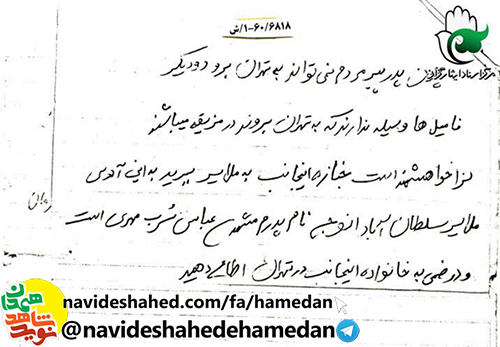 ۱-۶۰/۶۸۱۸/ش
چون پدر پیرمردم نمی تواند به تهران برود و دیگر
فامیل ها وسیله ندارند که به تهران بروند در مزیقه میباشند
لذا خواهشمند است جنازه اینجانب به ملایر ببرید به این آدرس
ملایر سلطان آباد نام پدرم مشهدی عباس شرب مهری است
و در ضمن به خانواده اینجانب در تهران اطلاع دهید
navideshahed.com/fa/hamedan
@navideshahedehamedan
نوید شاهد همدان